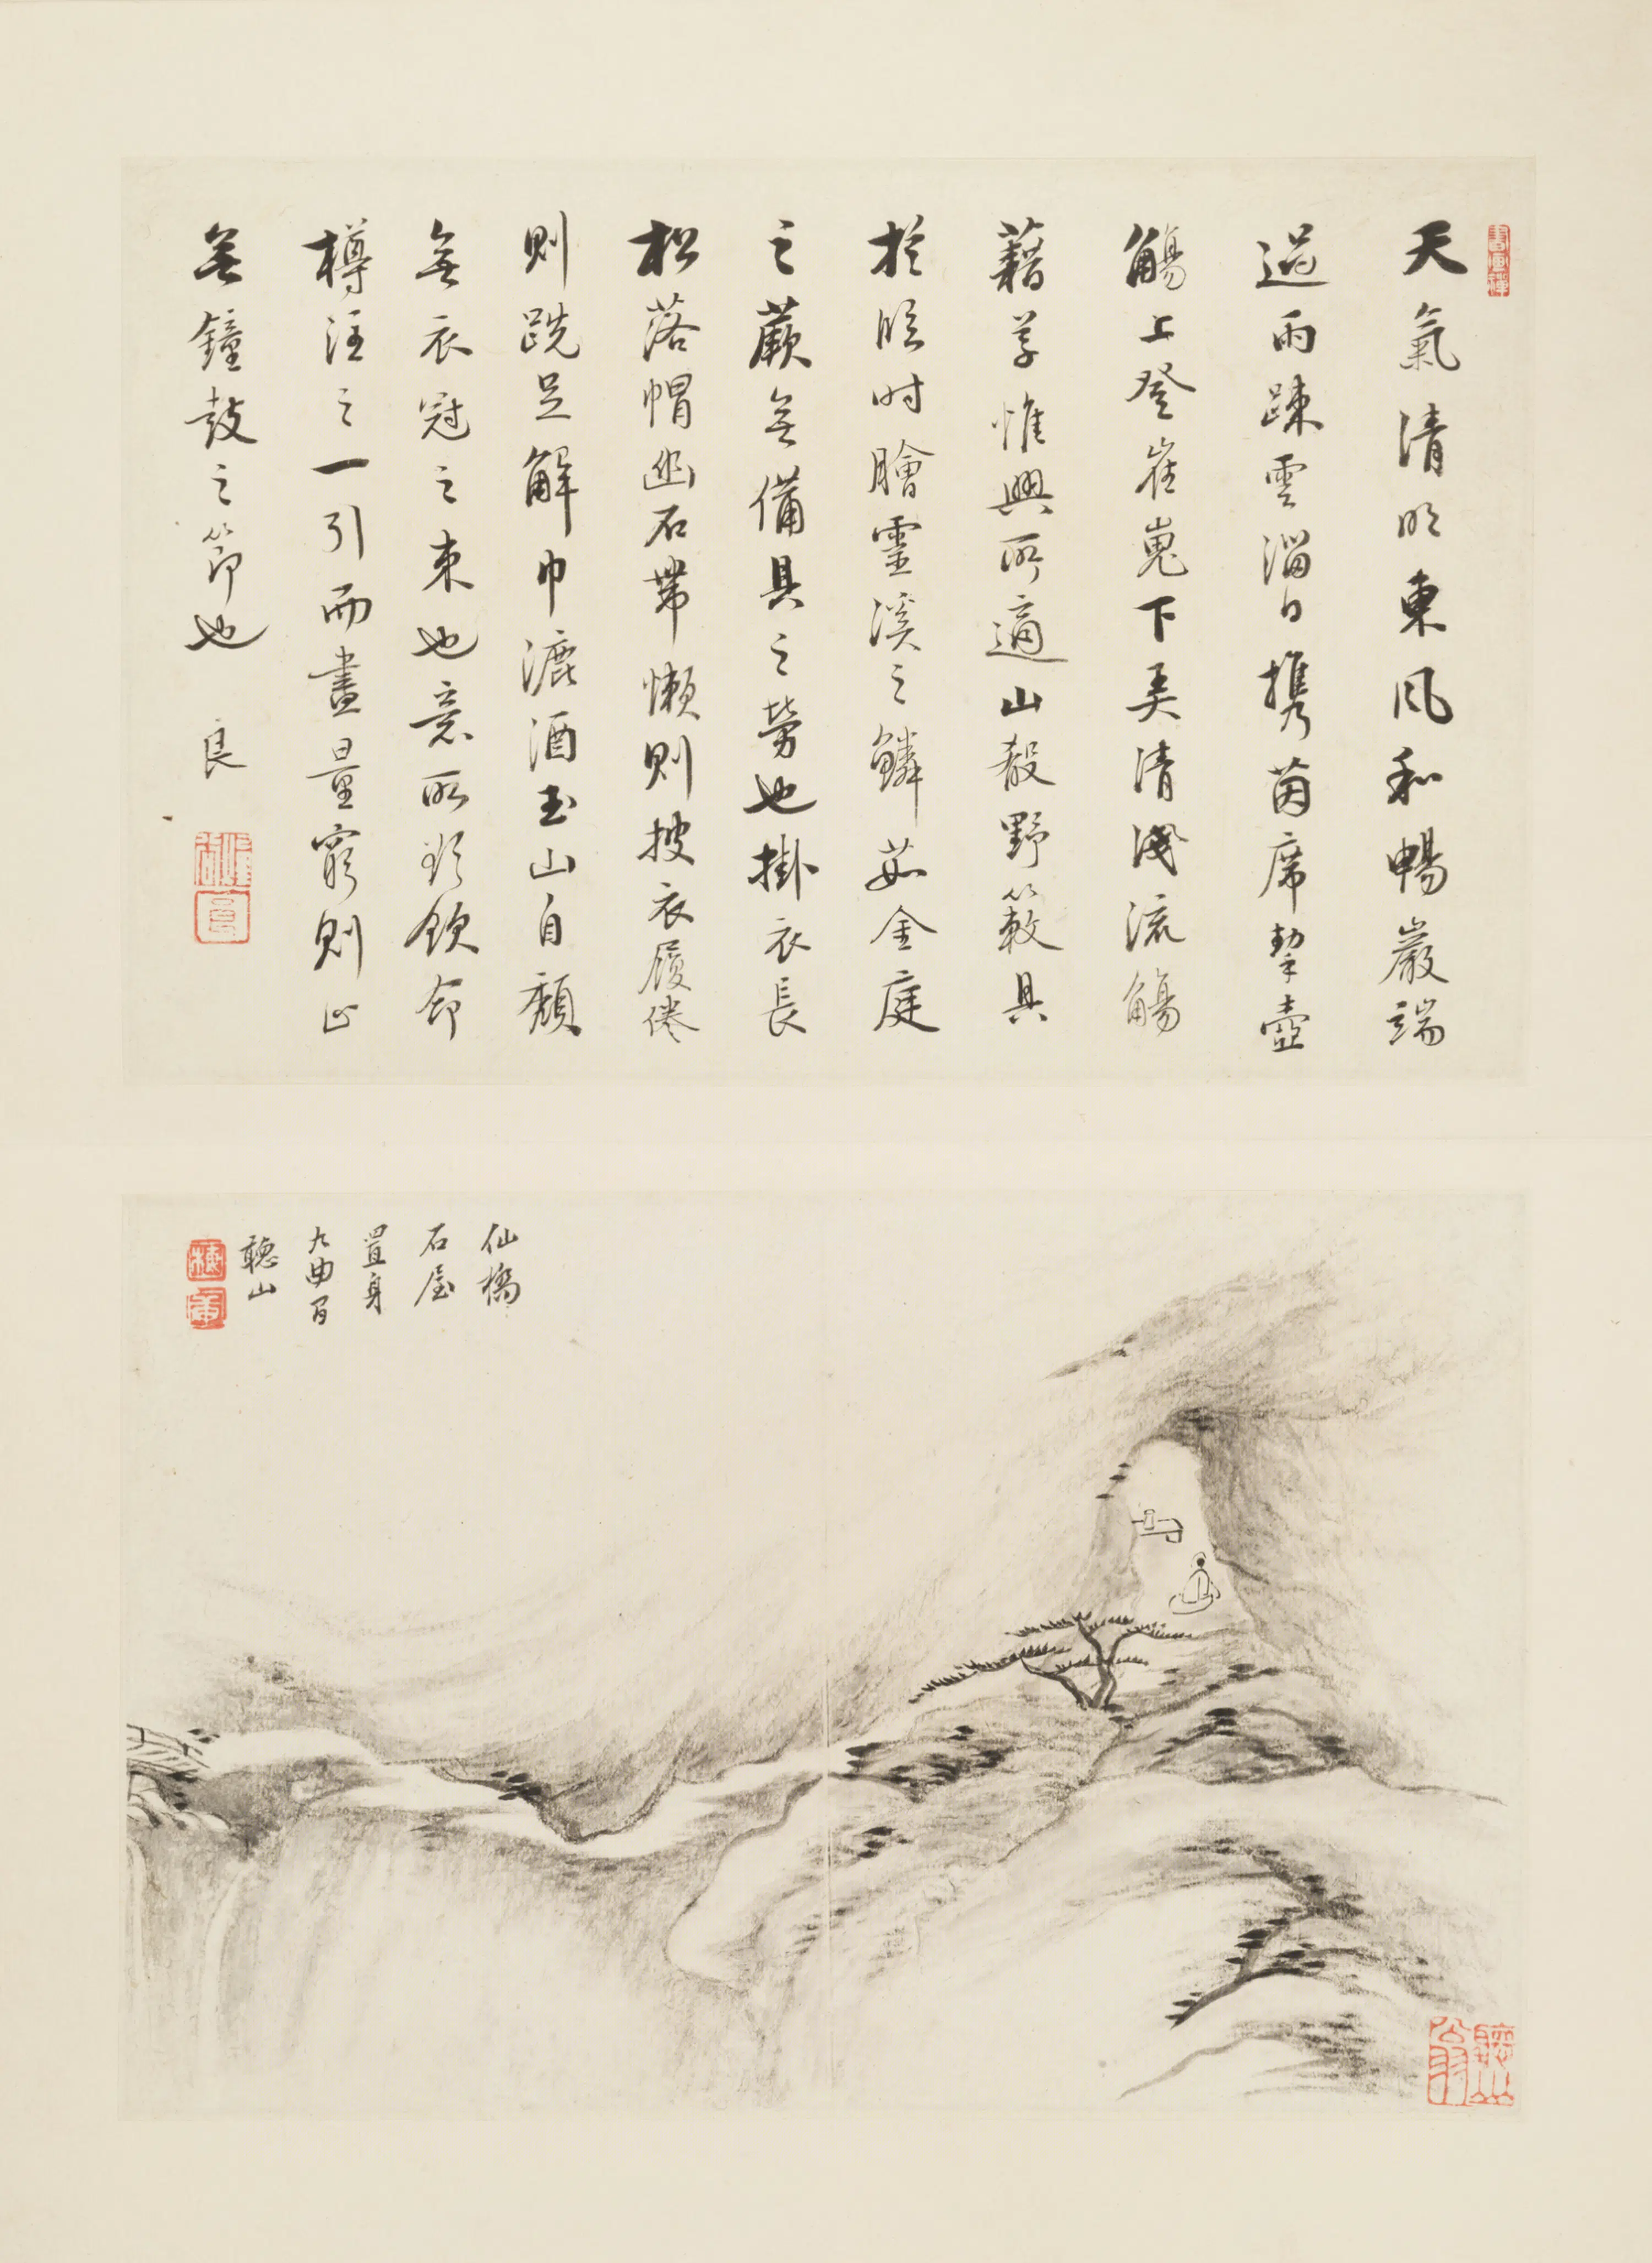 天氣清明東風和暢巖端
過雨疎雲溜日攜茵席挈壺
觴上登崔嵬下弄清淺流觴
藉草惟興所適山殽野蔌具
於臨時膾靈溪之鱗茹金庭
之蕨無備具之勞也掛衣長
松落帽幽石帶懶則披衣履倦
則跣足解巾漉酒玉山自頹
無衣冠之束也意所欲飲命
樽注之一引而盡量窮則止
無鐘鼓之節也 良
仙橋
石屋
置身
九曲間
聽山
書畫禪
聽山翁